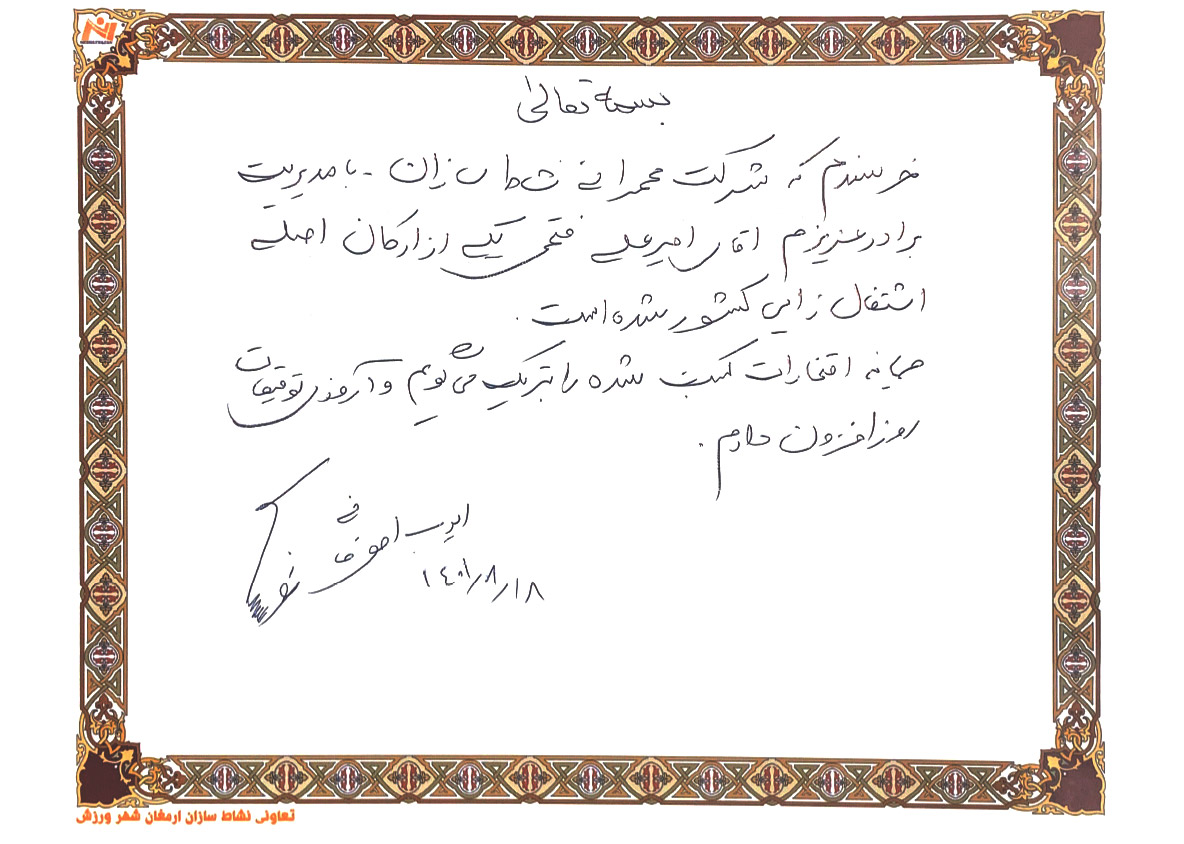 بسمه تعالی
خرسندم که شرکت عمرانی نشاط سازان - با مدیریت
برادر عزیزم آقای امیرعلی فتحی یکی از ارکان اصلی
اشتغال زایی کشور شده است.
صمیمانه افتخارات کسب شده را تبریک می گویم و آرزوی توفیقات
روز افزون دارم.
۱۴۰۱/۸/۱۸
تعاونی نشاط سازان ارمغان شهر ورزش